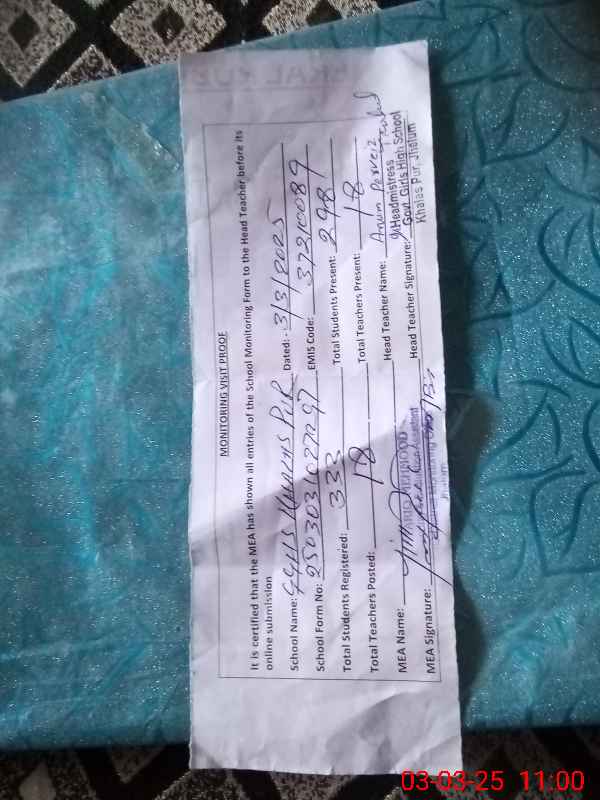 MONITORING VISIT PROOF
It is certified that the MEA has shown all entries of the School Monitoring Form to the Head Teacher before its
online submission
School Name: GGHS Khalas Pur Dated: 3/3/2025
School Form No: EMIS Code: 37210089
Total Students Registered: 333 Total Students Present: 298
Total Teachers Posted: 18 Total Teachers Present: 18
MEA Name: Head Teacher Name: Anum Perveiz
MEA Signature: Head Teacher Signature:
Headmistress
Govt. Girls High School
Khalas Pur, Jhelum
TARIQ MEHMOOD
Jhelum
03-03-25 11:00